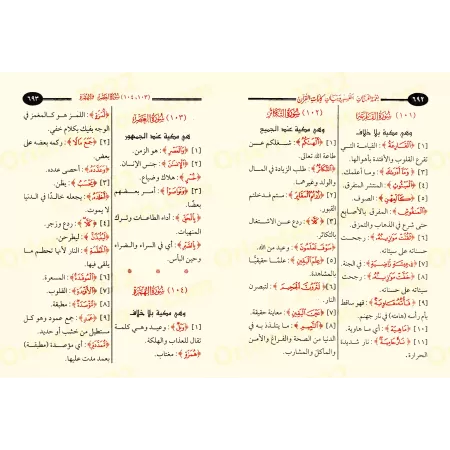 ٦٩٢
(١٠١) سُورَةُ القَارِعَةِ
وهي مكية بلا خلاف
[١] ﴿الْقَارِعَةُ﴾: القيامة التي
تقرع القلوب والأفئدة بأهوالها.
[٣] ﴿وَمَا أَدْرَاكَ﴾: وما أعلمك.
[٤] ﴿الْمَبْثُوثِ﴾: المنتشر المتفرق.
[٥] ﴿كَالْعِهْنِ﴾: الصوف.
﴿الْمَنْفُوشِ﴾: المفرق بالأصابع
حتى شرع في الذهاب والتمزق.
[٦] ﴿ثَقُلَتْ مَوَازِينُهُ﴾: رجحت
حسناته على سيئاته.
[٧] ﴿عِيشَةٍ رَاضِيَةٍ﴾: في الجنة.
[٨] ﴿خَفَّتْ مَوَازِينُهُ﴾: رجحت
سيئاته على حسناته.
[٩] ﴿فَأُمُّهُ هَاوِيَةٌ﴾: فهو ساقط
بأم رأسه (هامته) في نار جهنم.
[١٠] ﴿مَا هِيَهْ﴾: أي ما هاوية.
[١١] ﴿نَارٌ حَامِيَةٌ﴾: نار شديدة
الحرارة.
(١٠٢) سُورَةُ التَّكَاثُرِ
وهي مكية عند الجميع
[١] ﴿أَلْهَاكُمُ﴾: شغلكم عن
طاعة الله تعالى.
﴿التَّكَاثُرُ﴾: طلب الزيادة في المال
والولد وغيرهما.
[٢] ﴿زُرْتُمُ الْمَقَابِرَ﴾: متم فدخلتم
القبور.
[٣] ﴿كَلَّا﴾: ردع عن الاشتغال
بالتكاثر.
﴿سَوْفَ تَعْلَمُونَ﴾: وعيد من الله.
[٥] ﴿عِلْمَ الْيَقِينِ﴾: علمًا حقيقيًّا
بالمشاهدة.
[٦] ﴿لَتَرَوُنَّ الْجَحِيمَ﴾: لتبصرن
النار.
[٧] ﴿عَيْنَ الْيَقِينِ﴾: معاينة حقيقة.
[٨] ﴿النَّعِيمِ﴾: ما يتلذذ به في
الدنيا من الصحة والفراغ والأمن
والمأكل والمشارب.
(١٠٣-١٠٤) سُورَةُ العَصْرِ - الهُمَزَةِ
٦٩٣
(١٠٣) سُورَةُ العَصْرِ
هي مكية عند الجمهور
[١] ﴿وَالْعَصْرِ﴾: هو الزمن.
[٢] ﴿الْإِنْسَانَ﴾: جنس الإنسان.
﴿خُسْرٍ﴾: هلاك وضياع.
[٣] ﴿وَتَوَاصَوْا﴾: أمر بعضهم
بعضًا.
﴿بِالْحَقِّ﴾: أداء الطاعات وترك
المنهيات.
﴿بِالصَّبْرِ﴾: أي في السراء والضراء
وحين البأس.
(١٠٤) سُورَةُ الهُمَزَةِ
وهي مكية بلا خلاف
[١] ﴿وَيْلٌ﴾: وعيد وهي كلمة
تقال للعذاب والهلكة.
﴿هُمَزَةٍ﴾: مغتاب.
﴿لُمَزَةٍ﴾: اللمز هو كالغمز في
الوجه بفيك بكلام خفي.
[٢] ﴿جَمَعَ مَالًا﴾: وركمه بعضه على
بعض.
﴿وَعَدَّدَهُ﴾: أحصى عدده.
[٣] ﴿يَحْسَبُ﴾: يظن.
﴿أَخْلَدَهُ﴾: يجعله خالدًا في الدنيا
لا يموت.
[٤] ﴿كَلَّا﴾: ردع وزجر.
﴿لَيُنْبَذَنَّ﴾: ليطرحن.
﴿الْحُطَمَةِ﴾: النار لأنها تحطم ما
يلقى فيها.
[٦] ﴿الْمُوقَدَةُ﴾: المسعرة.
[٧] ﴿الْأَفْئِدَةِ﴾: القلوب.
[٨] ﴿مُؤْصَدَةٌ﴾: مطبقة.
[٩] ﴿عَمَدٍ﴾: جمع عمود وهو كل
مستطيل من خشب أو حديد.
﴿مُمَدَّدَةٍ﴾: أي مؤصدة (مطبقة)
بعمد مدت عليها.